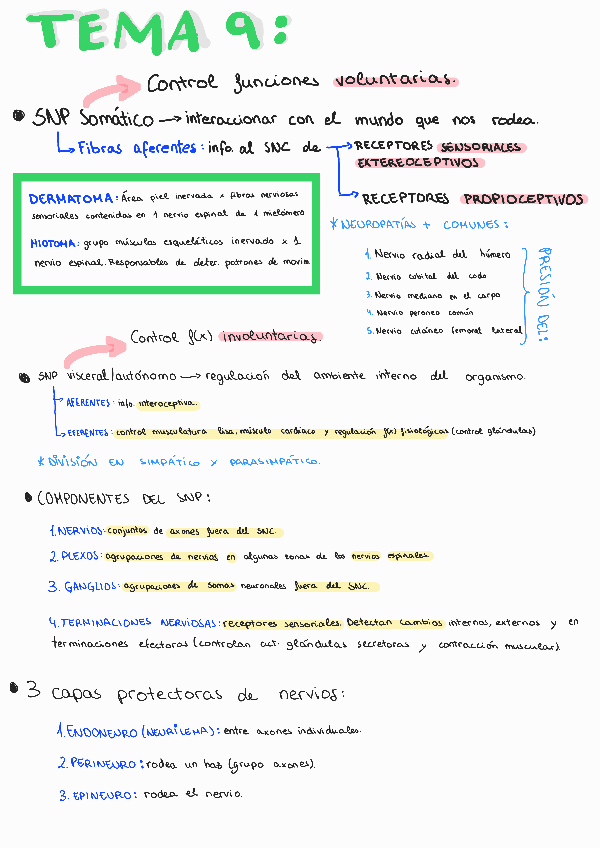 TEMA 9:
Control funciones voluntarias.
SNP Somático → interaccionar con el mundo que nos rodea.
Fibras aferentes: info. al SNC de → RECEPTORES SENSORIALES
EXTEREOCEPTIVOS
→ RECEPTORES PROPIOCEPTIVOS
DERMATOMA: Área piel inervada x fibras nerviosas
sensoriales contenidas en 1 nervio espinal de 1 mielómero
MIOTOMA: grupo músculos esqueléticos inervado x 1
nervio espinal. Responsables de deter. patrones de movim
* NEUROPATÍAS + COMUNES:
1. Nervio radial del húmero
2. Nervio cubital del codo
3. Nervio mediano en el carpo
4. Nervio peroneo común
5. Nervio cutáneo femoral lateral
PRESIÓN DEL:
Control f(x) involuntarias.
SNP visceral/autónomo → regulación del ambiente interno del organismo.
AFERENTES: info. interoceptiva.
EFERENTES: control musculatura lisa, músculo cardíaco y regulación f(x) fisiológicas (control glándulas)
* DIVISIÓN EN SIMPÁTICO Y PARASIMPÁTICO.
COMPONENTES DEL SNP:
1. NERVIOS: conjuntos de axones fuera del SNC.
2. PLEXOS: agrupaciones de nervios en algunas zonas de los nervios espinales.
3. GANGLIOS: agrupaciones de somas neuronales fuera del SNC.
4. TERMINACIONES NERVIOSAS: receptores sensoriales. Detectan cambios internos, externos y en
terminaciones efectoras (controlan act. glándulas secretoras y contracción muscular).
3 capas protectoras de nervios:
1. ENDONEURO (NEURILEMA): entre axones individuales.
2. PERINEURO: rodea un haz (grupo axones).
3. EPINEURO: rodea el nervio.